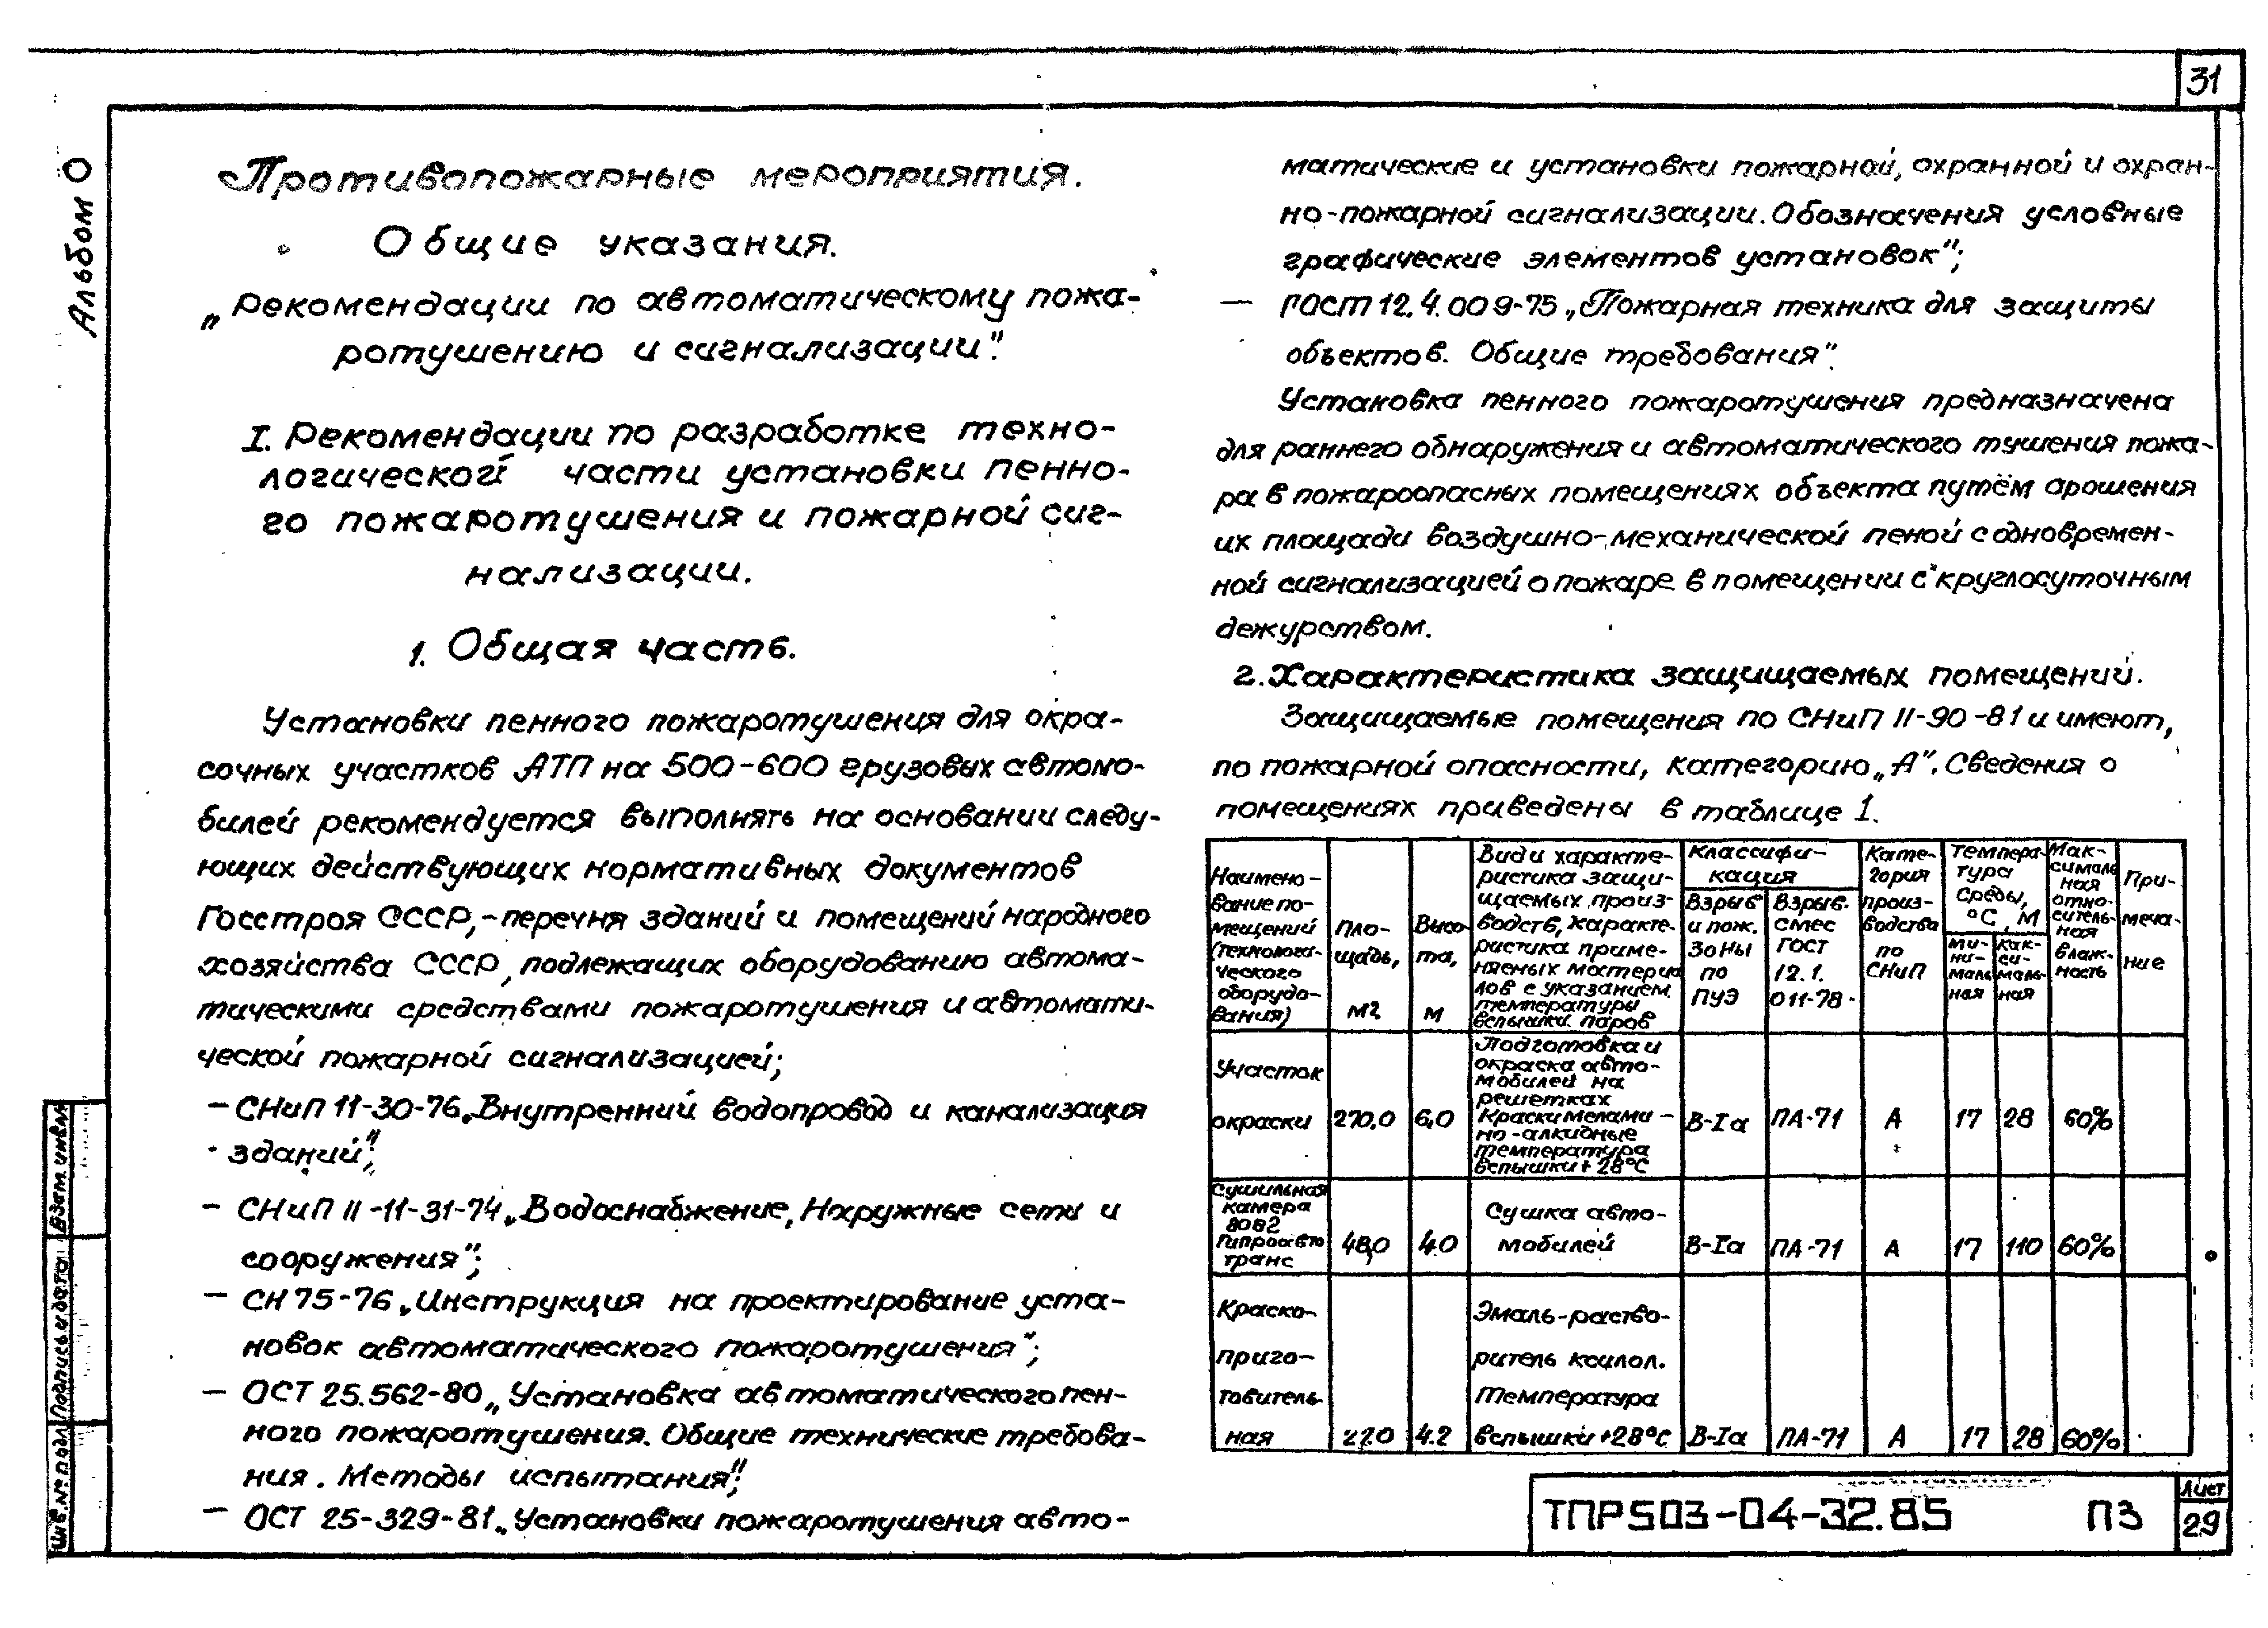 31
Альбом 0
Противопожарные мероприятия.
Общие указания.
„Рекомендации по автоматическому пожа-
ротушению и сигнализации".
I. Рекомендации по разработке техно-
логической части установки пенно-
го пожаротушения и пожарной сиг-
нализации.
1. Общая часть.
Установки пенного пожаротушения для окра-
сочных участков АТП на 500-600 грузовых автомо-
билей рекомендуется выполнять на основании следу-
ющих действующих нормативных документов
Госстроя СССР,-перечня зданий и помещений народного
хозяйства СССР, подлежащих оборудованию автома-
тическими средствами пожаротушения и автомати-
ческой пожарной сигнализацией;
- СНиП 11-30-76 „Внутренний водопровод и канализация
зданий";
- СНиП II-11-31-74 „Водоснабжение, Наружные сети и
сооружения";
- СН 75-76 „Инструкция на проектирование уста-
новок автоматического пожаротушения";
- ОСТ 25.562-80 „Установка автоматического пен-
ного пожаротушения. Общие технические требова-
ния. Методы испытания";
- ОСТ 25-329-81 „Установки пожаротушения авто-
матические и установки пожарной, охранной и охран-
но-пожарной сигнализации. Обозначения условные
графические элементов установок";
- ГОСТ 12.4.009-75 „Пожарная техника для защиты
объектов. Общие требования".
Установка пенного пожаротушения предназначена
для раннего обнаружения и автоматического тушения пожа-
ра в пожароопасных помещениях объекта путём орошения
их площади воздушно-механической пеной с одновремен-
ной сигнализацией о пожаре в помещении с круглосуточным
дежурством.
2. Характеристика защищаемых помещений.
Защищаемые помещения по СНиП II-90-81 и имеют,
по пожарной опасности, категорию „А". Сведения о
помещениях приведены в таблице 1.
Наимено-
вание по-
мещений
(технологи-
ческого
оборудо-
вания)
Пло-
щадь,
м2
Высо
та,
м
Вид и характе-
ристика защи-
щаемых произ-
водств, характе-
ристика приме-
няемых материа
лов с указанием
температуры
вспышки паров
Классифи-
кация
Взрыв
и пож.
Зоны
по
ПУЭ
Взрыв.
смес
ГОСТ
12.1.
011-78
Кате-
гория
произ-
водства
по
СНиП
Темпера-
тура
среды,
°С, М
ми-
ни-
маль
ная
как-
си-
маль-
ная
Мак-
сималь
ная
отно-
ситель-
ная
влаж-
ность
При-
меча-
ние
Участок
окраски
270,0
6,0
Подготовка и
окраска авто-
мобилей на
решетках
Краски мелами-
но-алкидные
температура
вспышки +28°С
В-Iа
ПА-71
А
17
28
60%
Сушильная
камера
8082
Гипроавто
транс
48,0
4.0
Сушка авто-
мобилей
В-Iа
ПА-71
А
17
110
60%
Краско-
приго-
товитель-
ная
22.0
4.2
Эмаль-раство-
ритель ксилол.
Температура
вспышки +28°С
В-Iа
ПА-71
А
17
28
60%
ТПР 503-04-32.85 ПЗ
Лист
29
Взам. инв.№
Подпись и дата
Инв.№ подл.